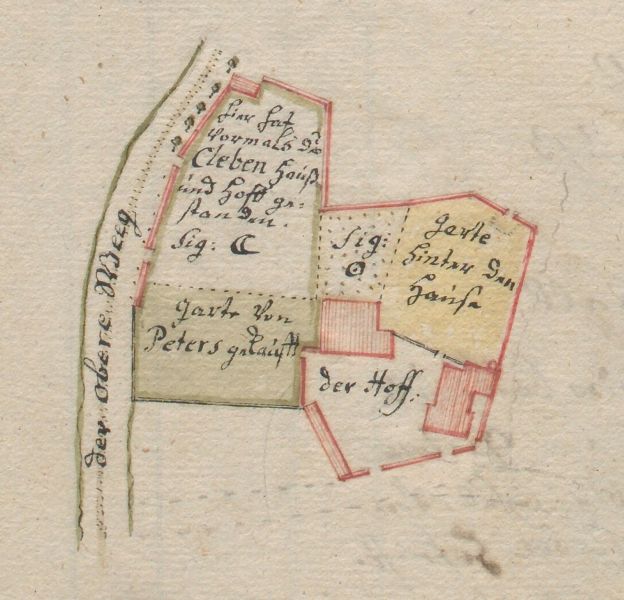 hier hat
vormals die
Cleben Hauß
und Hoff ge-
standen.
Sig: ☾
Sig:
⊙
garte
hinter den
Hause
garte von
Peters gekaufft
der Hoff.
der obere Weeg